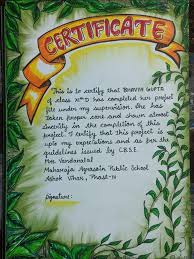 CERTIFICATE
This is to certify that BHAVYA GUPTA
of class XII D has completed her project
file under my supervision. She has
taken proper care and shown utmost
sincerity in the completion of this
project. I certify that this project is
up to my expectations and as per the
guidelines issued by C.B.S.E.
Mrs. Vandana Lal
Maharaja Agrasain Public School
Ashok Vihar, Phase-IV
Signature: